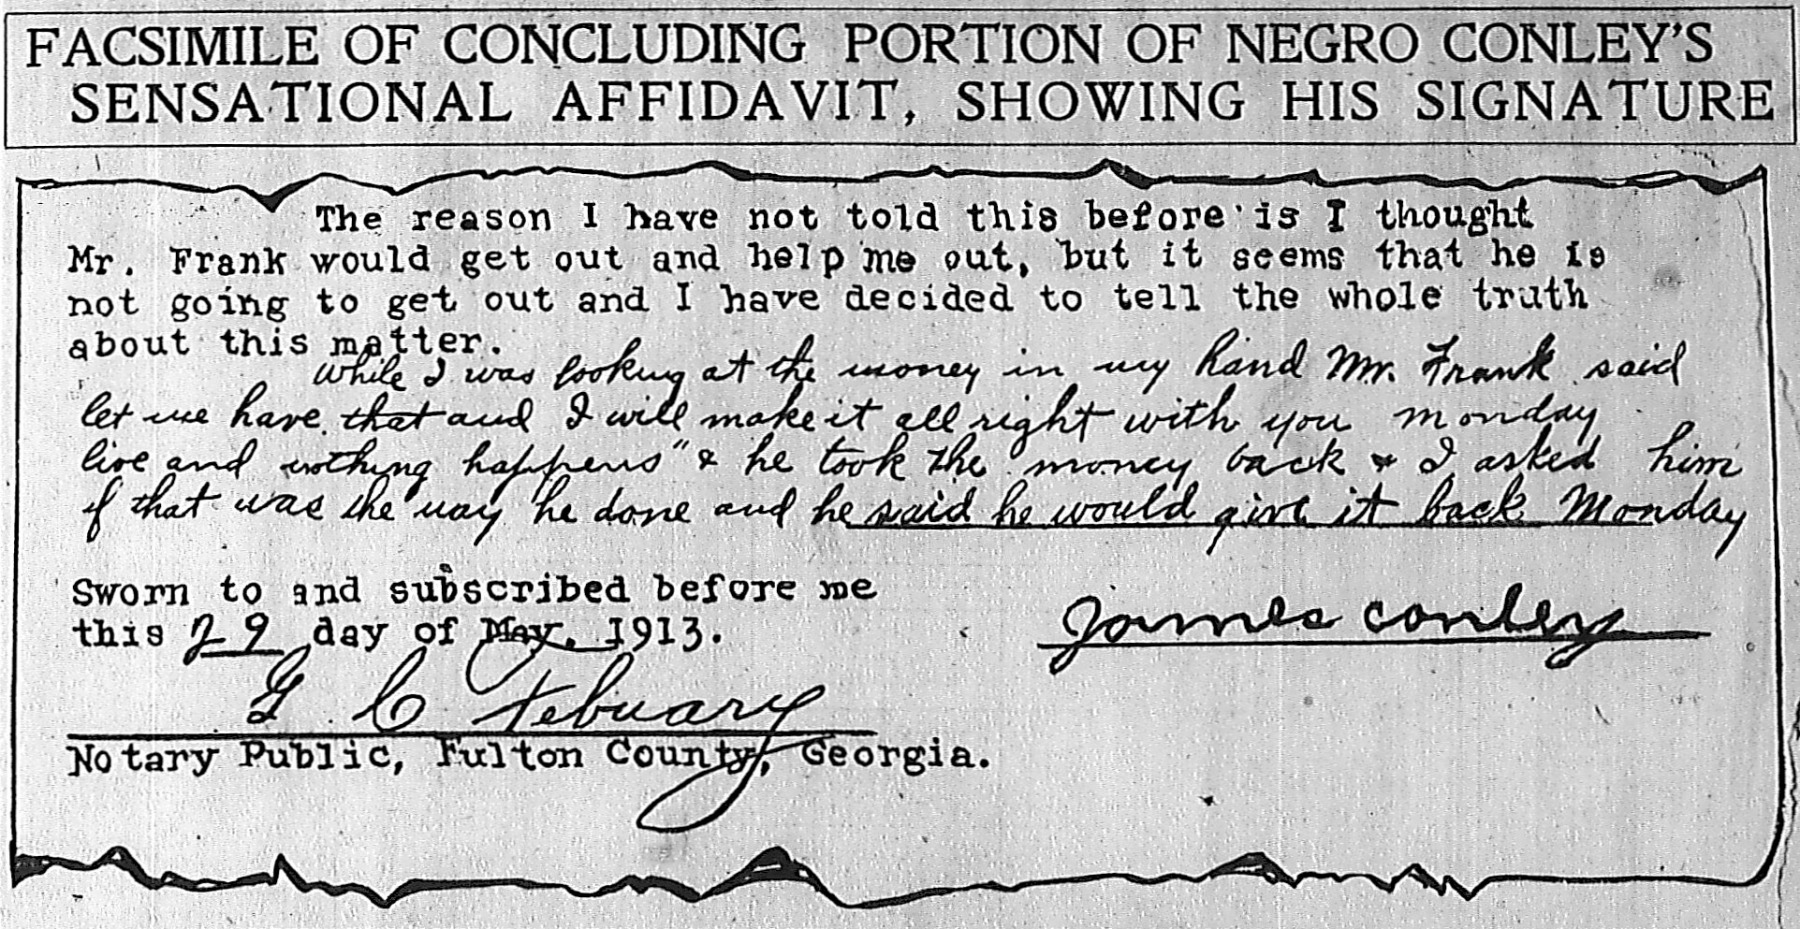 FACSIMILE OF CONCLUDING PORTION OF NEGRO CONLEY'S
SENSATIONAL AFFIDAVIT, SHOWING HIS SIGNATURE
The reason I have not told this before is I thought
Mr. Frank would get out and help me out, but it seems that he is
not going to get out and I have decided to tell the whole truth
about this matter.
While I was looking at the money in my hand Mr. Frank said
let me have that and I will make it all right with you Monday
live and nothing happens" & he took the money back & I asked him
if that was the way he done and he said he would give it back Monday
Sworn to and subscribed before me
this 29 day of May. 1913.
James Conley
G C Febuary
Notary Public, Fulton County, Georgia.